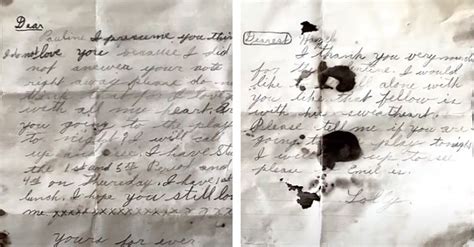 Dear
Pauline I presume you think
I do not love you because I did
not answer your note
right away please do not
with all my heart. Are
you going to the play
to night? I will call
up and see. I have
the 1st and 5th Period and
4th on Thursday. I have 1st
lunch. I hope you still love
me xxxxxxxxxxxxxxx
Yours for ever
Dearest
I thank you very much
for the I would
like to alone with
you like that fellow is
with his sweetheart.
Please tell me if you are
going to play tonight
I to see
please Emil is.